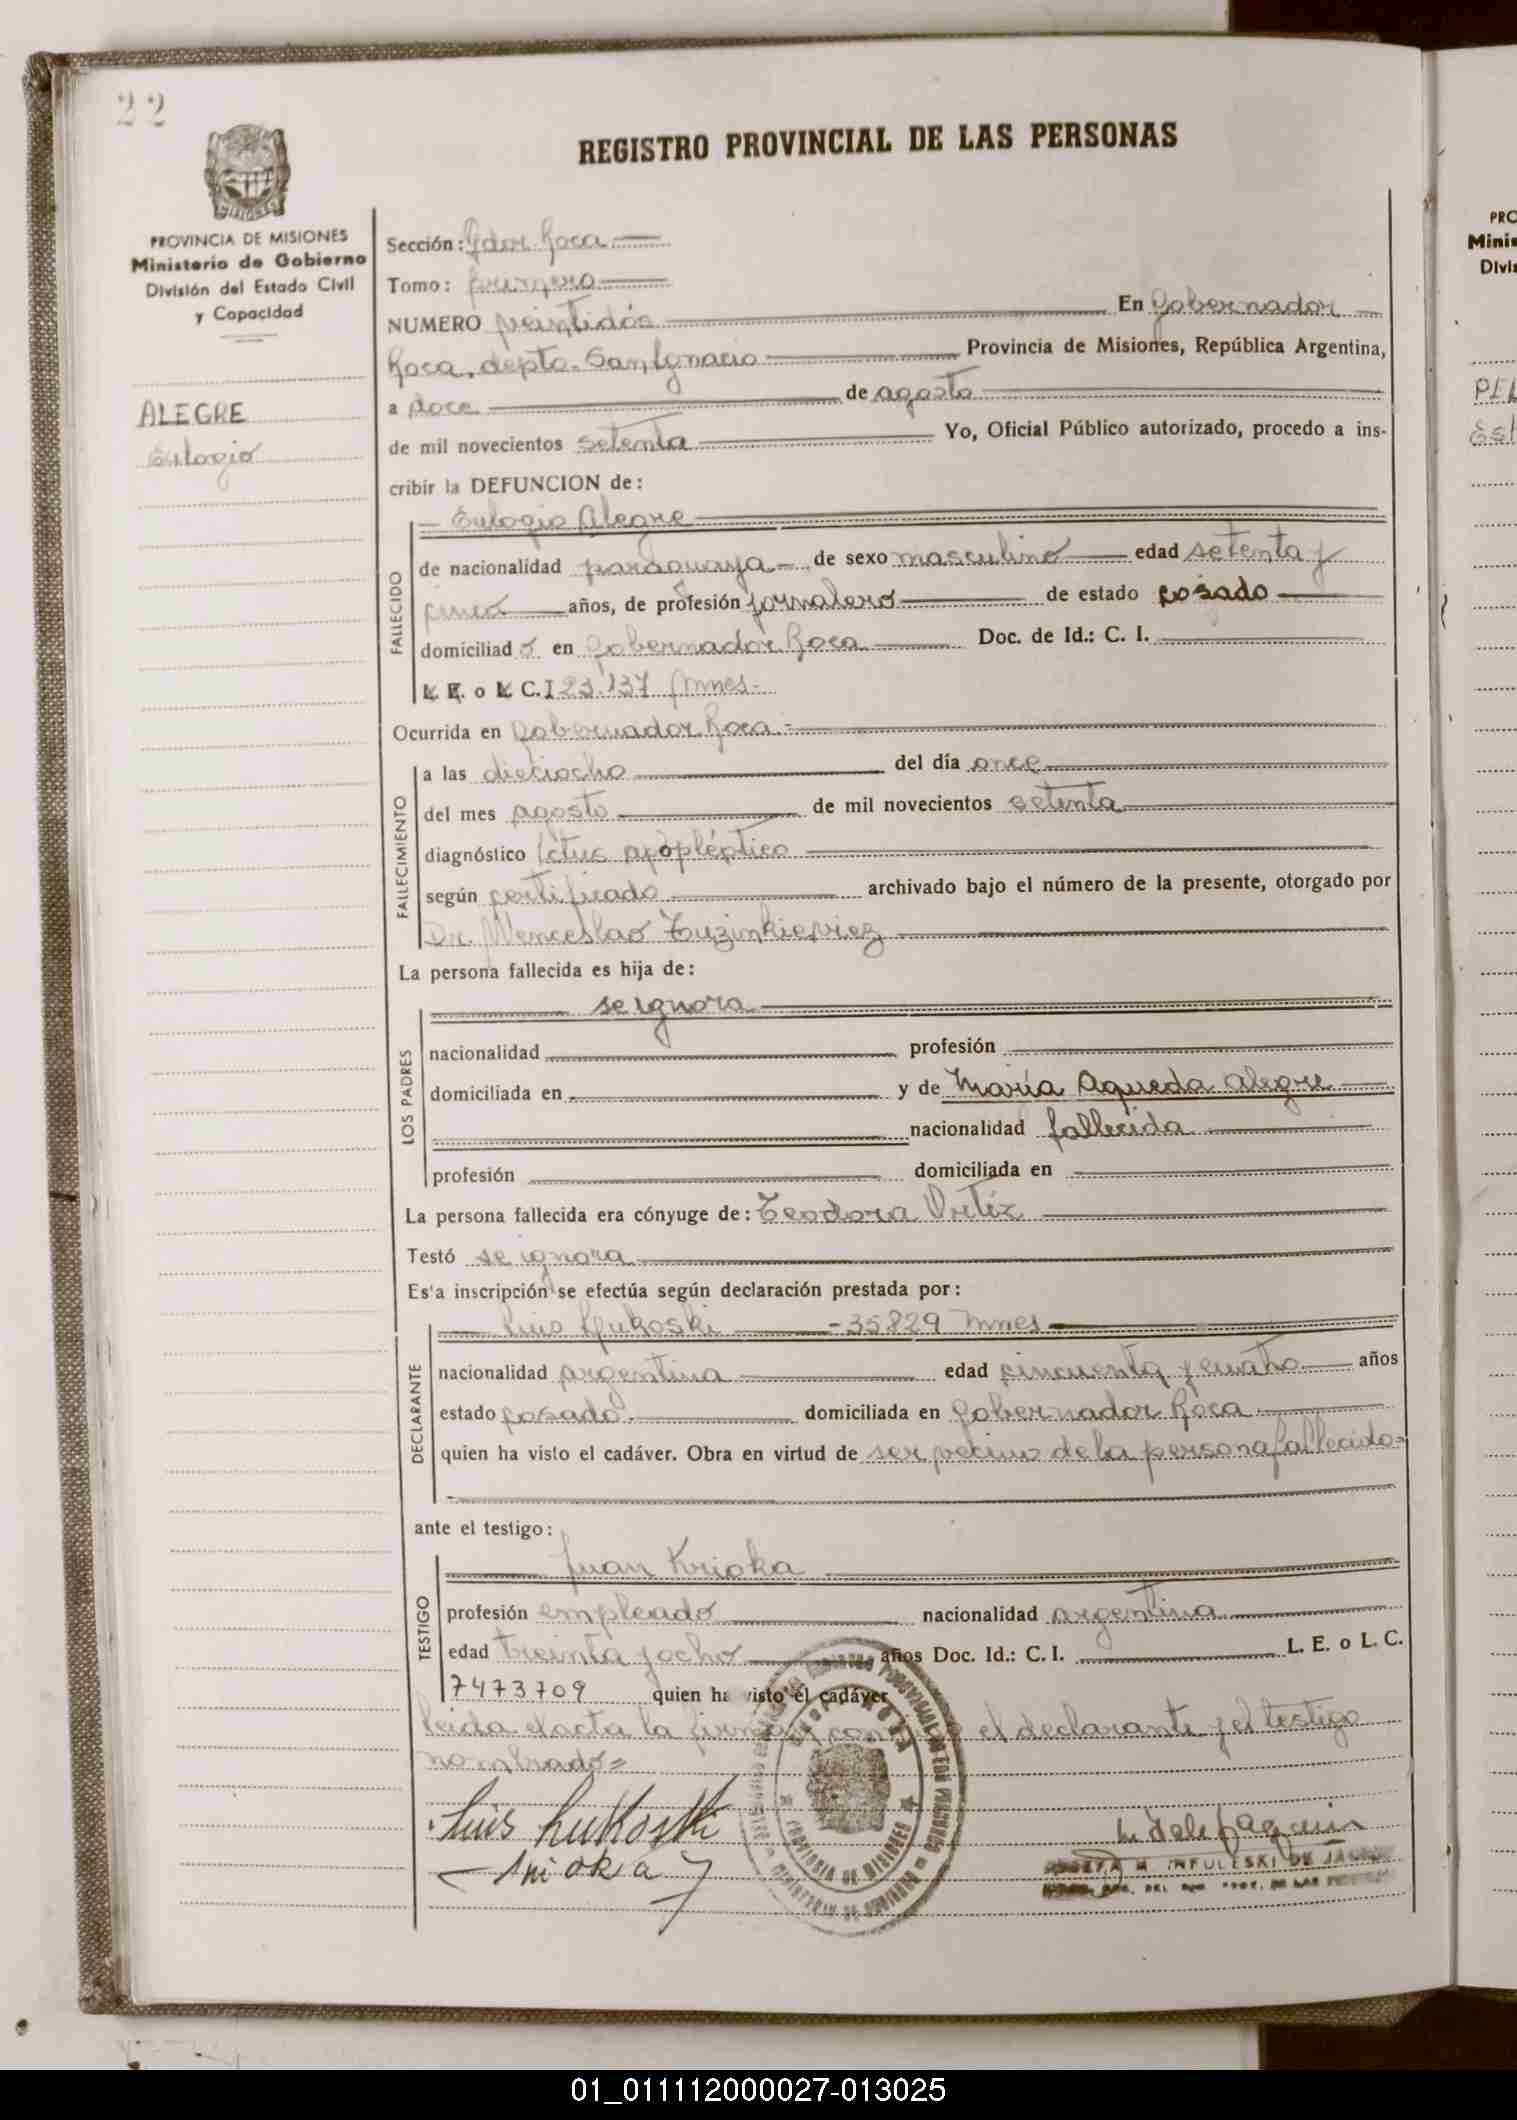 22
REGISTRO PROVINCIAL DE LAS PERSONAS
PROVINCIA DE MISIONES
Ministerio de Gobierno
División del Estado Civil
y Capacidad
ALEGRE
Eulogio
Sección: Gdor. Roca
Tomo: primero
NUMERO veintidós En Gobernador
Roca, depto. San Ignacio Provincia de Misiones, República Argentina,
a doce de agosto
de mil novecientos setenta Yo, Oficial Público autorizado, procedo a ins-
cribir la DEFUNCION de:
FALLECIDO
Eulogio Alegre
de nacionalidad paraguaya de sexo masculino edad setenta y
cinco años, de profesión jornalero de estado casado
domiciliad o en Gobernador Roca Doc. de Id.: C. I.
L. E. o L C. I 23.137 Mnes.
Ocurrida en Gobernador Roca.
FALLECIMIENTO
a las dieciocho del día once
del mes agosto de mil novecientos setenta
diagnóstico Ictus apopléptico
según certificado archivado bajo el número de la presente, otorgado por
Dr. Wenceslao Tuzinkieviez
La persona fallecida es hija de:
LOS PADRES
se ignora
nacionalidad profesión
domiciliada en y de María Agueda Alegre
nacionalidad fallecida
profesión domiciliada en
La persona fallecida era cónyuge de: Teodora Ortíz
Testó se ignora
Es'a inscripción se efectúa según declaración prestada por:
DECLARANTE
Luis Lukoski - 35829 Mnes
nacionalidad argentina edad cincuenta y cuatro años
estado casado. domiciliada en Gobernador Roca
quien ha visto el cadáver. Obra en virtud de ser vecino de la persona fallecido=
ante el testigo:
TESTIGO
Juan Krioka
profesión empleado nacionalidad argentina
edad treinta y ocho años Doc. Id.: C. I. L. E. o L. C.
7473709 quien ha visto el cadáver
leida el acta la firman con el declarante y el testigo
nombrado=
Luis Lukoski
PROVINCIA DE MISIONES
PRO
Minis
Divis
01_011112000027-013025